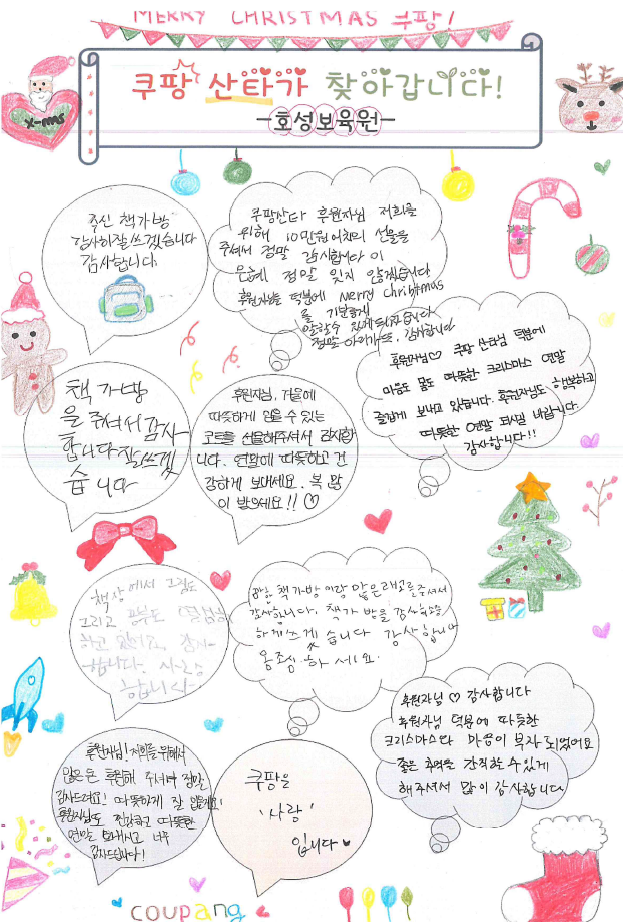 MERRY CHRISTMAS 쿠팡!
쿠팡 산타가 찾아갑니다!
-호성보육원-
X-mas
주신 책가방
감사히잘쓰겠습니다
감사합니다.
쿠팡산타 후원자님 저희를
위해 10만원어치의 선물을
주셔서 정말 감사합니다 이
은혜 정말 잊지 않겠습니다
후원자님들 덕분에 Merry Christmas
를 기분좋게
정말 감사합니다
후원자님♡ 쿠팡 산타님 덕분에
마음도 몸도 따뜻한 크리스마스 연말
즐겁게 보내고 있습니다. 후원자님도 행복하고
따뜻한 연말 되시길 바랍니다.
감사합니다!!
책가방
을 주셔서 감사
합니다 잘쓰겠
습니다
후원자님, 겨울에
따뜻하게 입을 수 있는
코트를 선물해주셔서 감사합니
다. 연말에 따뜻하고 건
강하게 보내세요. 복 많
이 받으세요!! ♡
책상에서 그림도
그리고 공부도 열심히
하고 있어요. 감사
합니다. 사랑
합니다
책가방 이랑 많은 주셔서
감사합니다. 책가방을 감사
하게쓰겠습니다 감사합니다
몸조심 하세요.
후원자님♡ 감사합니다
후원자님 덕분에 따듯한
크리스마스와 마음이 부자되었어요
좋은 추억을 간직할수있게
해주셔서 많이 감사합니다
후원자님! 저희를 위해서
많은 돈 후원해 주셔서 정말
감사드려요! 따뜻하게 잘 입을게요!
후원자님도 건강하고 따뜻한
연말 보내시고 너무
감사드립니다!
쿠팡은
"사랑"
입니다♥
coupang